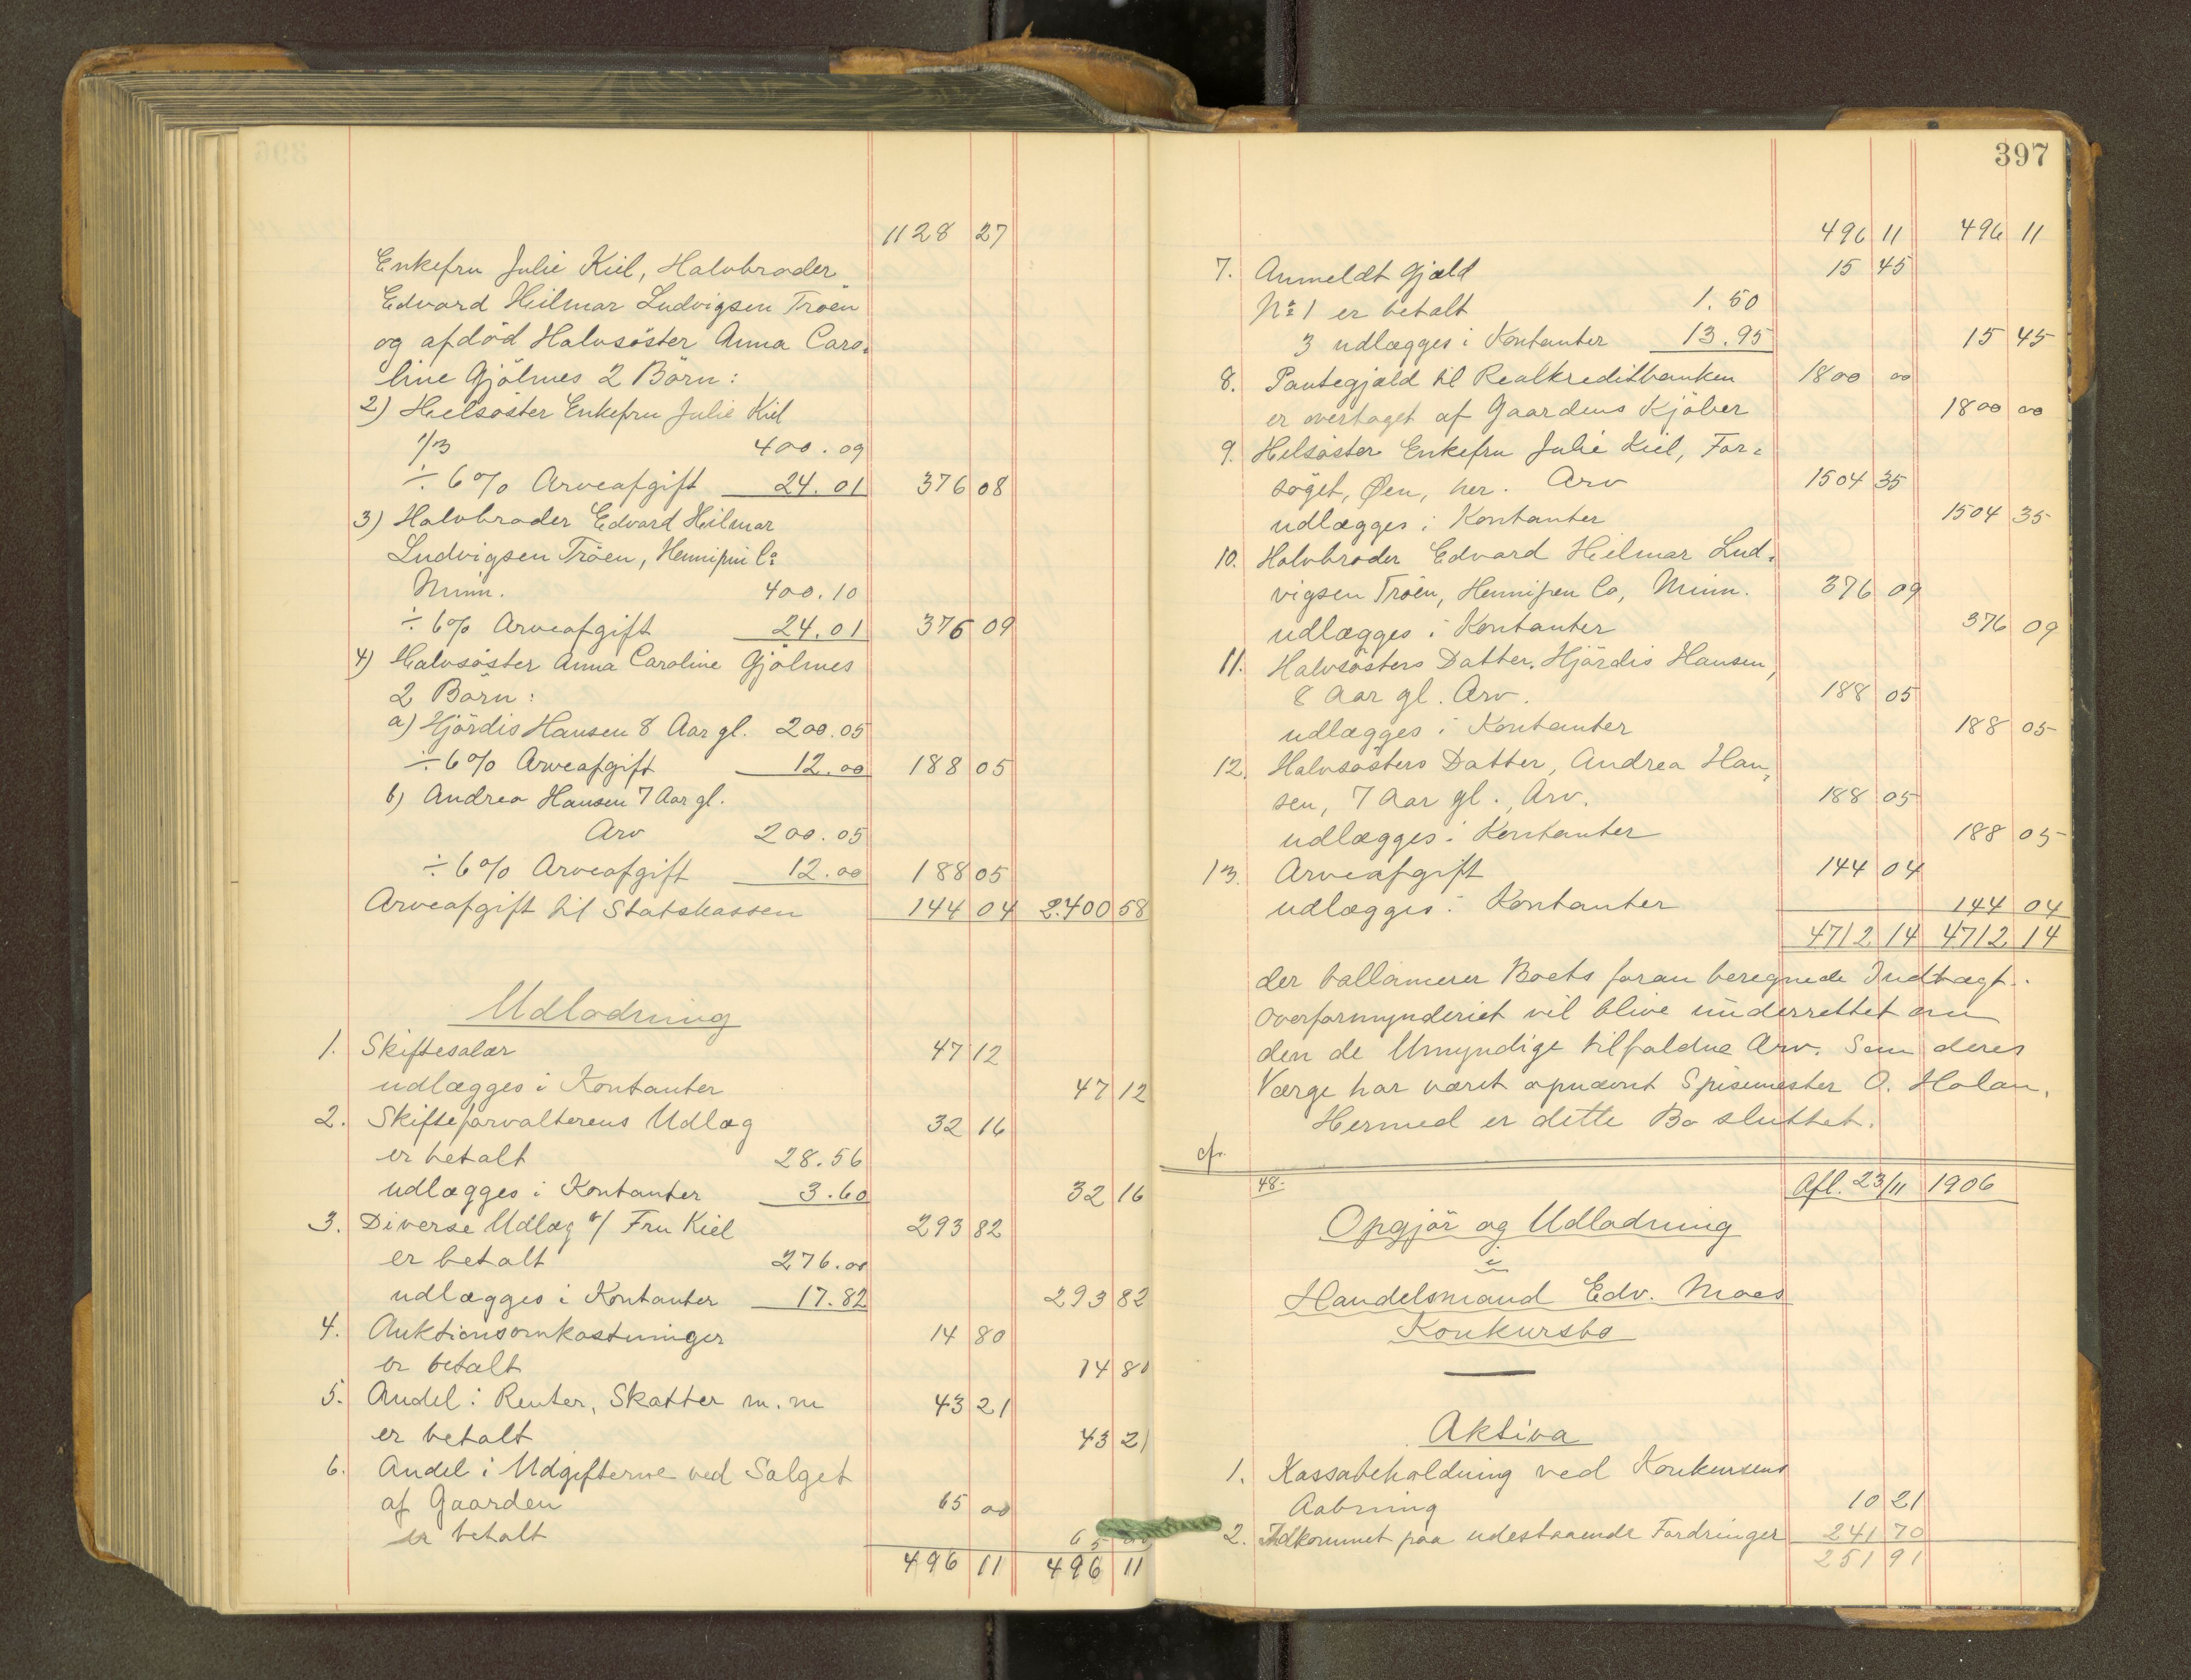 1128 27
Enkefru Julie Kiel, Halvbroder
Edvard Hilmar Ludvigsen Tröen
og afdöd Halvsöster Anna Caro-
line Gjölmes 2 Börn:
2) Helsöster Enkefru Julie Kiel
1/3 400.09
÷ 6% Arveafgift 24.01 376 08
3) Halvbroder Edvard Hilmar
Ludvigsen Tröen, Hennipin Co
Minn. 400.10
÷ 6% Arveafgift 24.01 376 09
4) Halvsöster Anna Caroline Gjölmes
2 Börn:
a) Hjördis Hansen 8 Aar gl. 200.05
÷ 6% Arveafgift 12.00 188 05
b) Andrea Hansen 7 Aar gl.
Arv 200.05
÷ 6% Arveafgift 12.00 188 05
Arveafgift til Statskassen 144 04 2.400 58
Udlodning
1. Skiftesalær 47 12
udlægges i Kontanter 47 12
2. Skifteforvalterens Udlæg 32 16
er betalt 28.56
udlægges i Kontanter 3.60 32 16
3. Diverse Udlæg v/ Fru Kiel 293 82
er betalt 276.00
udlægges i Kontanter 17.82 293 82
4. Auktionsomkostninger 14 80
er betalt 14 80
5. Andel i Renter, Skatter m.m 43 21
er betalt 43 21
6. Andel i Udgifterne ved Salget
af Gaarden 65 00
er betalt 65 00
496 11 496 11
397
496 11 496 11
7. Anmeldt Gjæld 15 45
No 1 er betalt 1.50
3 udlægges i Kontanter 13.95 15 45
8. Pantegjæld til Realkreditbanken 1800 00
er overtaget af Gaardens Kjöber 1800 00
9. Helsöster Enkefru Julie Kiel, For-
söget, Øen, her. Arv 1504 35
udlægges i Kontanter 1504 35
10. Halvbroder Edvard Hilmar Lud-
vigsen Tröen, Hennipen Co, Minn. 376 09
udlægges i Kontanter 376 09
11. Halvsösters Datter, Hjördis Hansen,
8 Aar gl. Arv. 188 05
udlægges i Kontanter 188 05
12. Halvsösters Datter, Andrea Han-
sen, 7 Aar gl., Arv. 188 05
udlægges i Kontanter 188 05
13. Arveafgift 144 04
udlægges i Kontanter 144 04
4712 14 4712 14
der ballancerer Boets foran beregnede Indtægt.
Overformynderiet vil blive underrettet om
den de Umyndige tilfaldne Arv. Som deres
Værge har været opnævnt Spisemester O. Holan.
Hermed er dette Bo sluttet.
cfr.
48. Afl. 23/11 1906
Opgjör og Udlodning
i
Handelsmand Edv. Moes
Konkursbo
Aktiva
1. Kassabeholdning ved Konkursens
Aabning 10 21
2. Indkommet paa udestaaende Fordringer 241 70
251 91